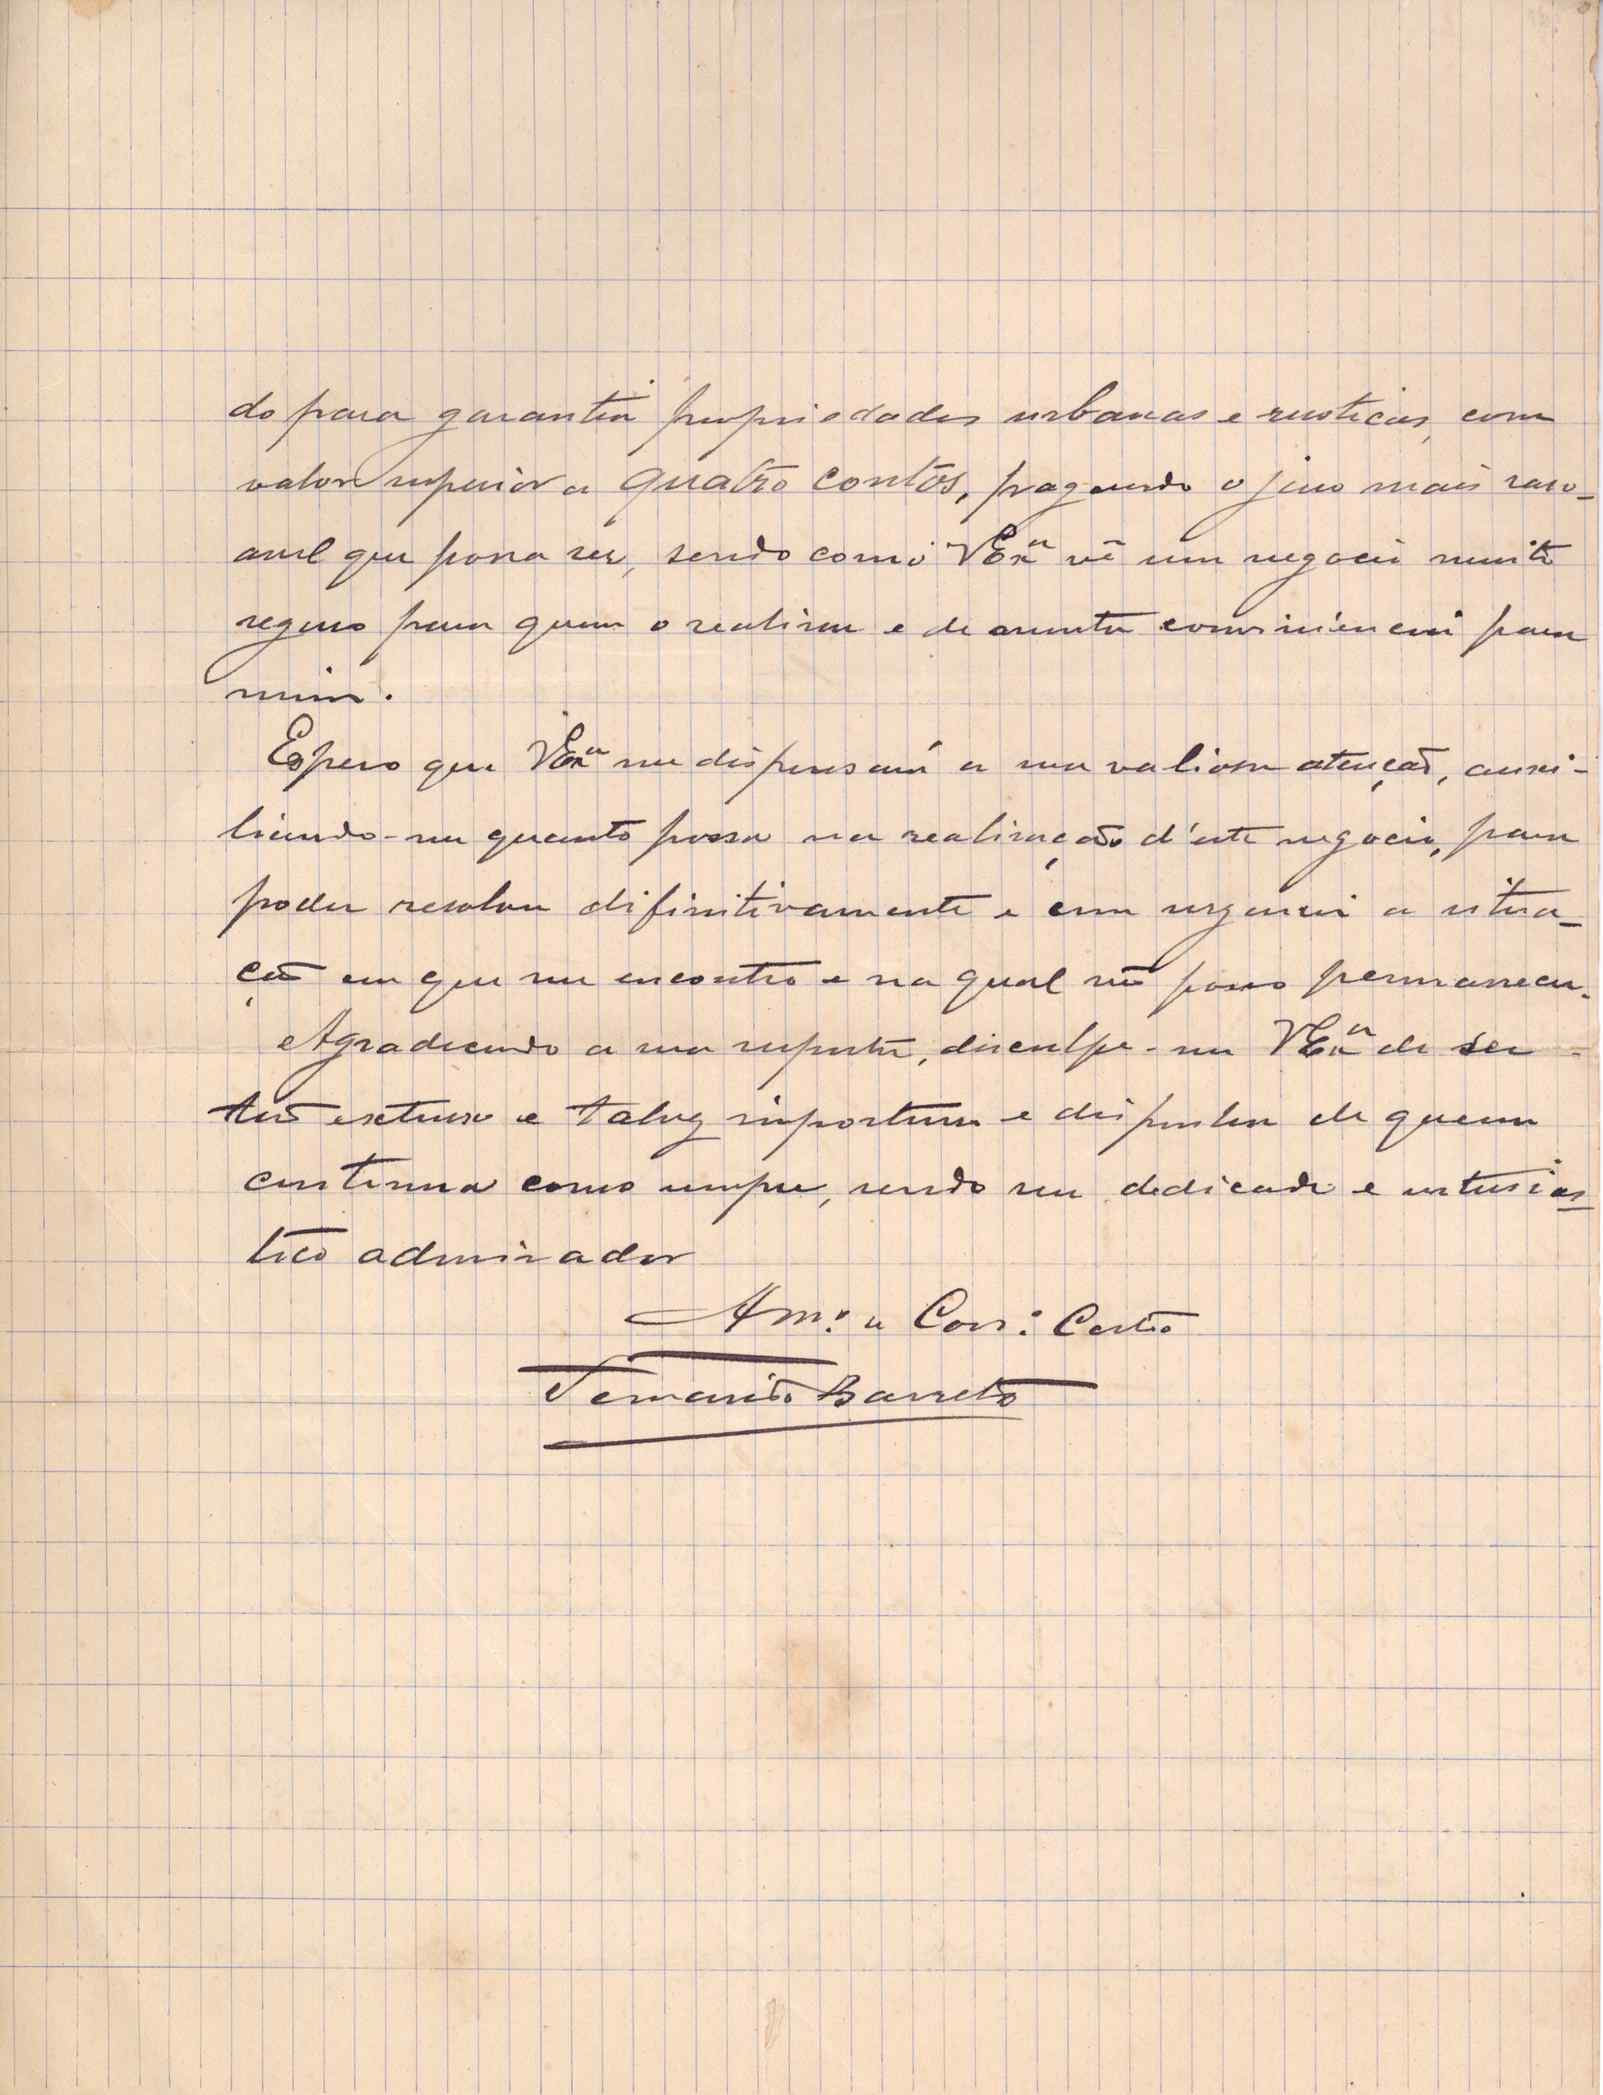 do para garantia propriedades urbanas e rusticas, com
valor superior a quatro contos, pagando o juro mais raso-
avel que possa ser, sendo como VExª vê um negocio muito
seguro para quem o realisar e de muita conviniencia para
mim.
Espero que VExª me dispensará a sua valiosa atenção, auxi-
liando-me quanto possa na realisação d'este negocio, para
poder resolver difinitivamente e com urgencia a situa-
ção em que me encontro e na qual não posso permanecer.
Agradecendo a sua resposta, disculpe-me VExª de ser
tão extenso e talvez importuno e disponha de quem
continua como sempre, sendo seu dedicado e entusias
tico admirador
Amº. e Corr.º: Certo
Fernando Barreto